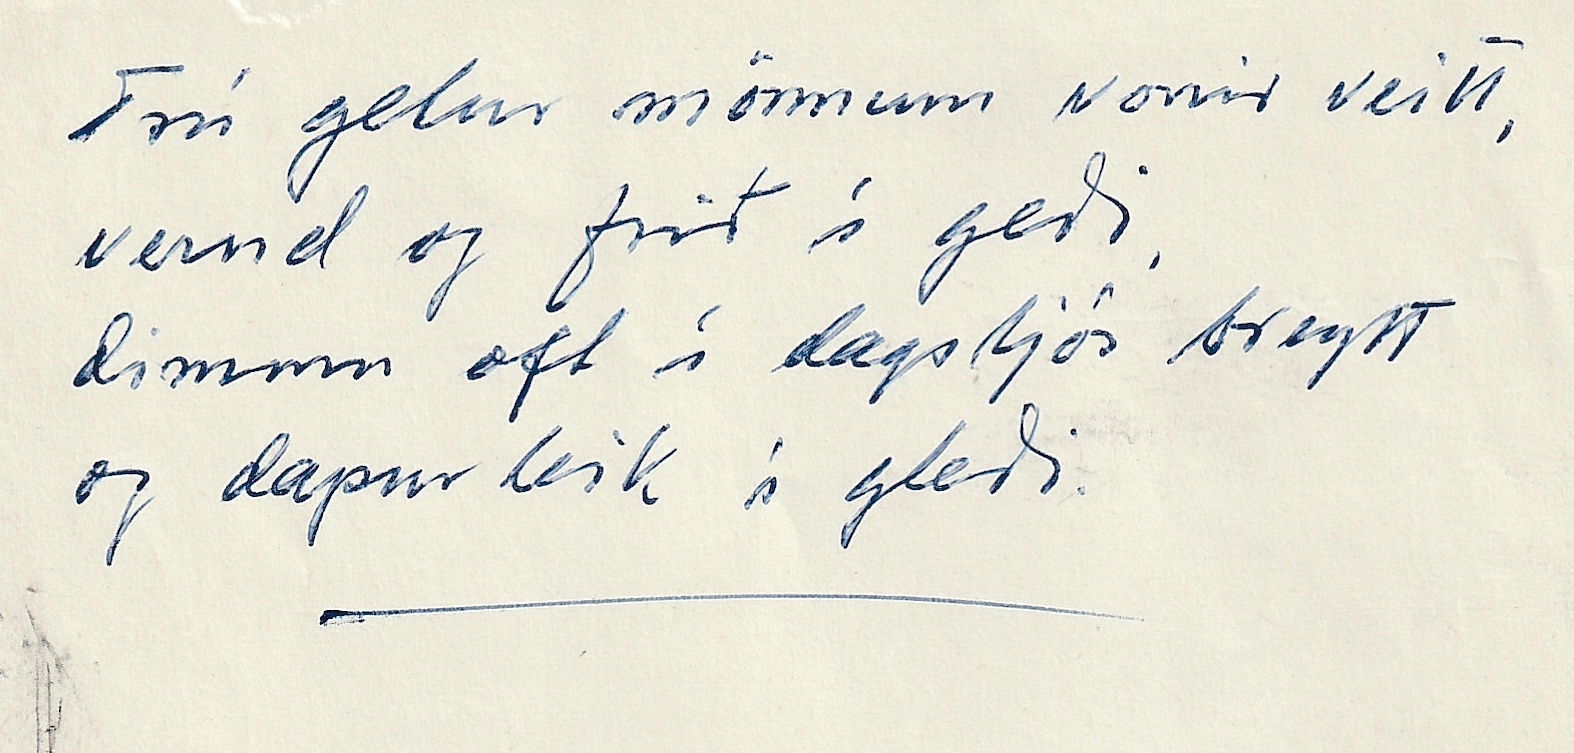 Trú getur mönnum vonir veitt,
vernd og frið í geði,
dimmu oft í dagsljós breytt
og dapurleik í gleði.